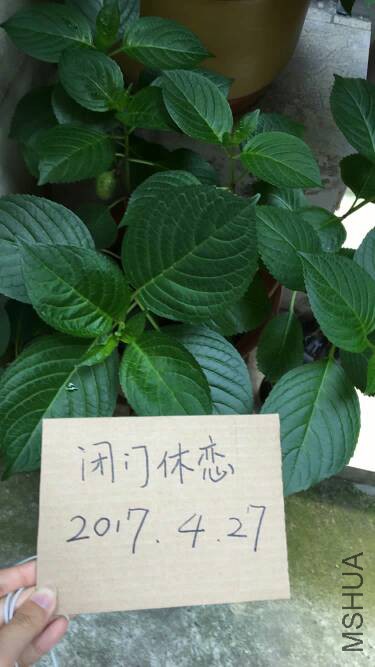 闭门休恋
2017.4.27
MSHUA